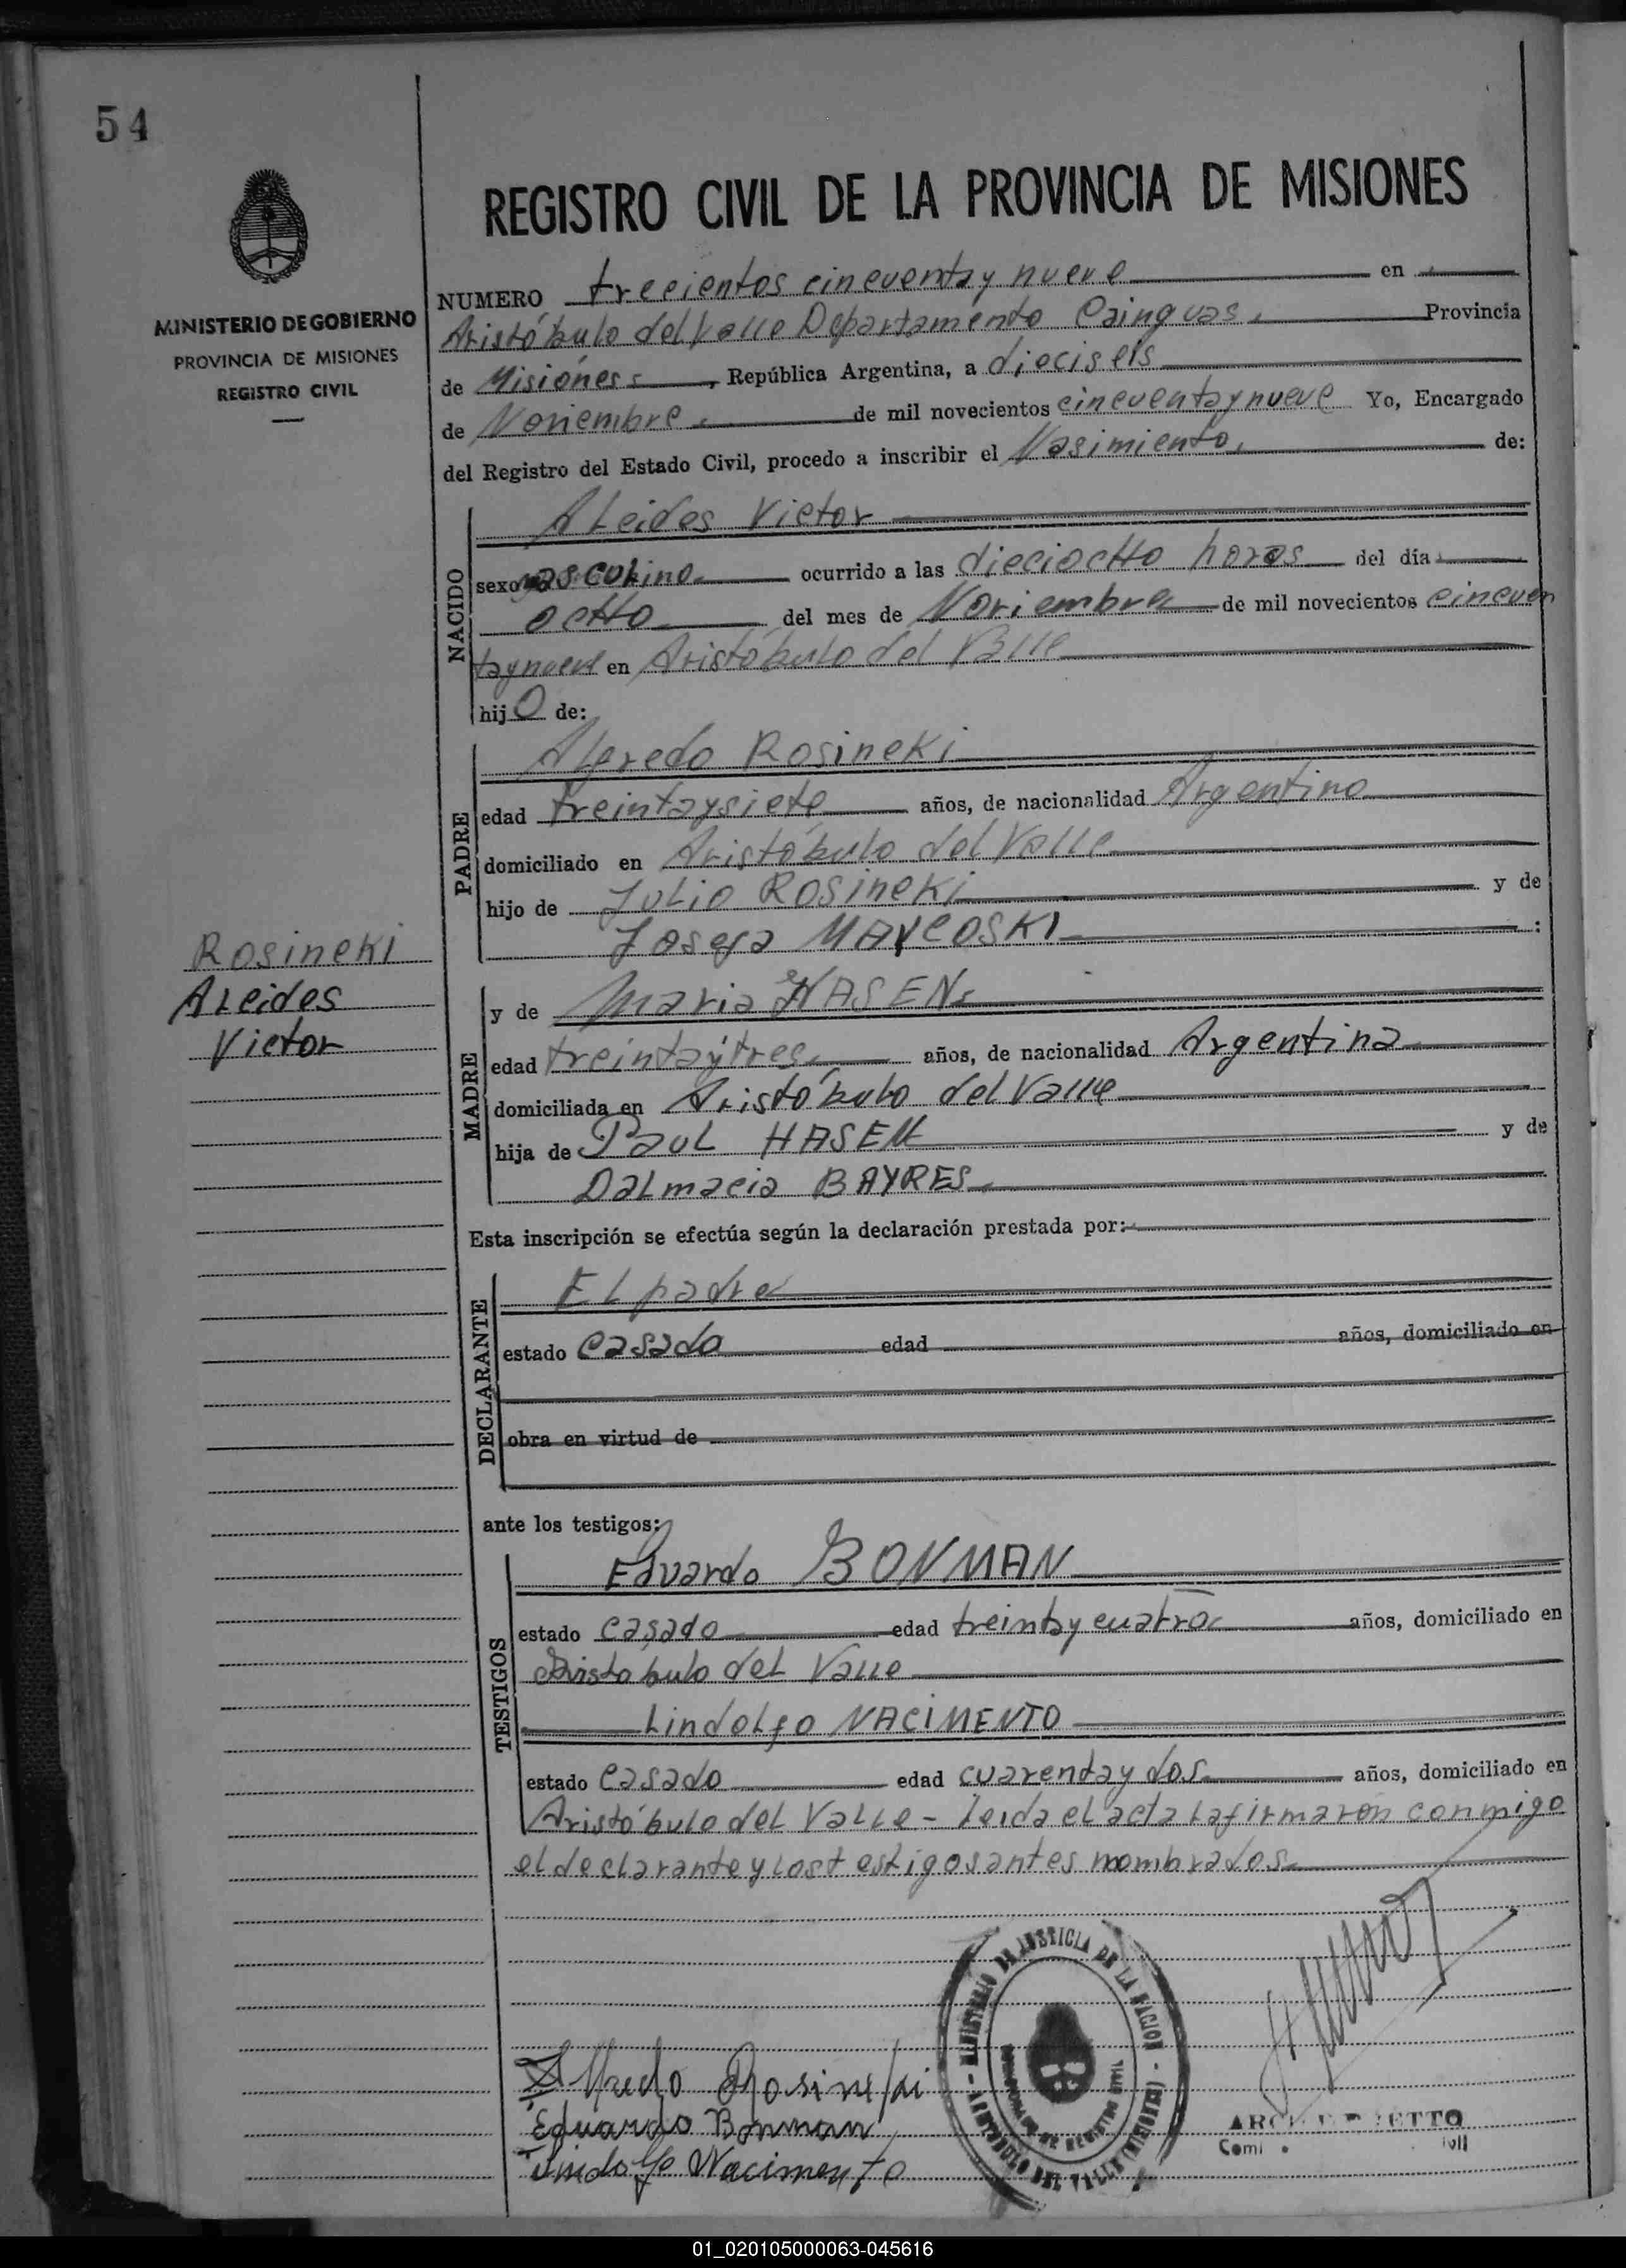 54
REGISTRO CIVIL DE LA PROVINCIA DE MISIONES
MINISTERIO DE GOBIERNO
PROVINCIA DE MISIONES
REGISTRO CIVIL
NUMERO trecientos cincuentay nueve en
Aristóbulo del Valle Departamento Cainguas. Provincia
de Misiones , República Argentina, a dieciseis
de Noviembre. de mil novecientos cincuentaynueve Yo, Encargado
del Registro del Estado Civil, procedo a inscribir el Nasimiento. de:
NACIDO
ALcides Victor
sexo mascolino ocurrido a las dieciocHo horas del día
ocHo del mes de Noviembre de mil novecientos cincuen
taynueve en Aristóbulo del Valle
hijo de:
PADRE
Alfredo Rosineki
edad treintaysiete años, de nacionalidad Argentino
domiciliado en Aristóbulo del Valle
hijo de Julio Rosineki y de
Josefa MARCOSKI :
Rosineki
ALcides
Victor
MADRE
y de Maria HASEN
edad treintaytres años, de nacionalidad Argentina
domiciliada en Aristóbulo del Valle
hija de PauL HASEN y de
DaLmacia BAYRES
Esta inscripción se efectúa según la declaración prestada por:
DECLARANTE
EL padre
estado casado edad años, domiciliado en
obra en virtud de
ante los testigos:
TESTIGOS
Eduardo BONMAN
estado casado edad treintaycuatro años, domiciliado en
Aristobulo deL Valle
LindoLfo NACIMENTO
estado casado edad cuarentay dos años, domiciliado en
Aristóbulo deL VaLLe - Leida eL acta La firmaron conmigo
el declarante y Los testigos antes nombrados
MINISTERIO DE JUSTICIA DE LA NACION
ARISTOBULO DEL VALLE (MISIONES)
Alfredo Rosineki
Eduardo Bonman
Lindolfo Nacimento
01_020105000063-045616